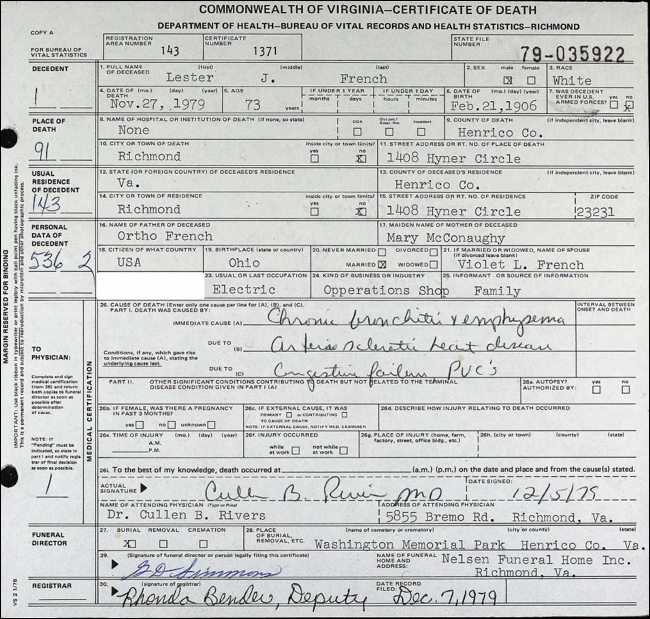 COMMONWEALTH OF VIRGINIA—CERTIFICATE OF DEATH
DEPARTMENT OF HEALTH—BUREAU OF VITAL RECORDS AND HEALTH STATISTICS—RICHMOND
COPY A
FOR BUREAU OF VITAL STATISTICS
REGISTRATION AREA NUMBER 143
CERTIFICATE NUMBER 1371
STATE FILE NUMBER 79-035922
DECEDENT
1
1. FULL NAME OF DECEASED (first) (middle) (last)
Lester J. French
2. SEX male female
3. RACE White
4. DATE OF DEATH (mo.) (day) (year)
Nov.27, 1979
5. AGE 73 years
IF UNDER 1 YEAR months days
IF UNDER 1 DAY hours minutes
6. DATE OF BIRTH (mo.) (day) (year)
Feb.21,1906
7. WAS DECEDENT EVER IN U.S. ARMED FORCES? yes no
PLACE OF DEATH
91
8. NAME OF HOSPITAL OR INSTITUTION OF DEATH (if none, so state)
None
DOA Out pat/Emer. Rm. Inpatient
9. COUNTY OF DEATH (if independent city, leave blank)
Henrico Co.
10. CITY OR TOWN OF DEATH inside city or town limits? yes no
Richmond
11. STREET ADDRESS OR RT. NO. OF PLACE OF DEATH
1408 Hyner Circle
USUAL RESIDENCE OF DECEDENT
143
12. STATE (OR FOREIGN COUNTRY) OF DECEASED'S RESIDENCE
Va.
13. COUNTY OF DECEASED'S RESIDENCE (if independent city, leave blank)
Henrico Co.
14. CITY OR TOWN OF RESIDENCE inside city or town limits? yes no
Richmond
15. STREET ADDRESS OR RT. NO. OF RESIDENCE ZIP CODE
1408 Hyner Circle 23231
PERSONAL DATA OF DECEDENT
536 2
16. NAME OF FATHER OF DECEASED
Ortho French
17. MAIDEN NAME OF MOTHER OF DECEASED
Mary McConaughy
18. CITIZEN OF WHAT COUNTRY
USA
19. BIRTHPLACE (state or country)
Ohio
20. NEVER MARRIED DIVORCED
MARRIED WIDOWED
21. IF MARRIED OR WIDOWED, NAME OF SPOUSE
(if divorced leave blank)
Violet L. French
23. USUAL OR LAST OCCUPATION
Electric
24. KIND OF BUSINESS OR INDUSTRY
Opperations Shop
25. INFORMANT - OR SOURCE OF INFORMATION
Family
MARGIN RESERVED FOR BINDING
TO PHYSICIAN:
Complete and sign medical certification (item 26) and return both copies to funeral director as soon as possible after determination of cause.
NOTE: If "Pending" must be indicated, so state in part I and notify registrar of final decision as soon as possible.
1
MEDICAL CERTIFICATION
26. CAUSE OF DEATH (Enter only one cause per line for (A), (B), and (C).
INTERVAL BETWEEN ONSET AND DEATH
PART I. DEATH WAS CAUSED BY:
IMMEDIATE CAUSE (A) Chronic bronchitis & emphysema
Conditions, if any, which gave rise to immediate cause (A), stating the underlying cause last.
DUE TO (B) Arteriosclerotic heart disease
DUE TO (C) Congestive failure PVC's
PART II. OTHER SIGNIFICANT CONDITIONS CONTRIBUTING TO DEATH BUT NOT RELATED TO THE TERMINAL DISEASE CONDITION GIVEN IN PART I (A)
26a. AUTOPSY? AUTHORIZED BY: yes no
26b. IF FEMALE, WAS THERE A PREGNANCY IN PAST 3 MONTHS?
yes no unknown
26c. IF EXTERNAL CAUSE, IT WAS
PRIMARY or CONTRIBUTING
TO CAUSE OF DEATH
NOTE: IF EXTERNAL CAUSE, NOTIFY MED. EXAMINER
26d. DESCRIBE HOW INJURY RELATING TO DEATH OCCURRED
26e. TIME OF INJURY (mo.) (day) (year)
A.M.
P.M.
26f. INJURY OCCURRED
while at work not while at work
26g. PLACE OF INJURY (home, farm, factory, street, office bldg., etc.)
26h. (city or town) (county) (state)
26i. To the best of my knowledge, death occurred at (a.m.) (p.m.) on the date and place and from the cause(s) stated.
ACTUAL SIGNATURE Cullen B. Rivers MD
DATE SIGNED: 12/5/79
NAME OF ATTENDING PHYSICIAN (Type or Print)
Dr. Cullen B. Rivers
ADDRESS OF ATTENDING PHYSICIAN
5855 Bremo Rd. Richmond, Va.
FUNERAL DIRECTOR
27. BURIAL REMOVAL CREMATION
X
28. PLACE OF BURIAL, REMOVAL, ETC. (name of cemetery or crematory) (city or county) (state)
Washington Memorial Park Henrico Co. Va.
29. (Signature of funeral director or person legally filing this certificate)
G D Simmons
NAME OF FUNERAL HOME AND ADDRESS:
Nelsen Funeral Home Inc.
Richmond, Va.
REGISTRAR
30. (signature of registrar)
Rhonda Bender, Deputy
DATE RECORD FILED: Dec. 7, 1979
VS 2 1/78